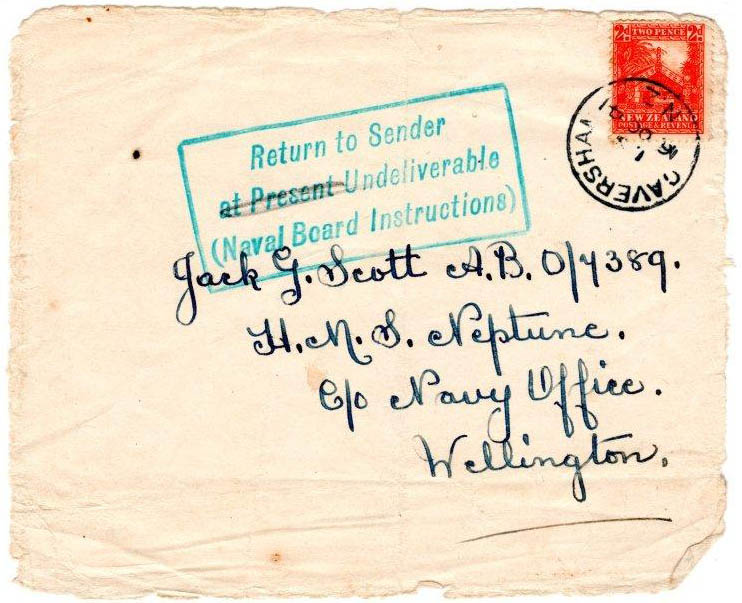 2d TWO PENCE 2d
NEW ZEALAND
POSTAGE & REVENUE
CAVERSHAM
N.Z.
Return to Sender
at Present Undeliverable
(Naval Board Instructions)
Jack G. Scott A.B. O/7389.
H.M.S. Neptune.
C/o Navy Office.
Wellington.